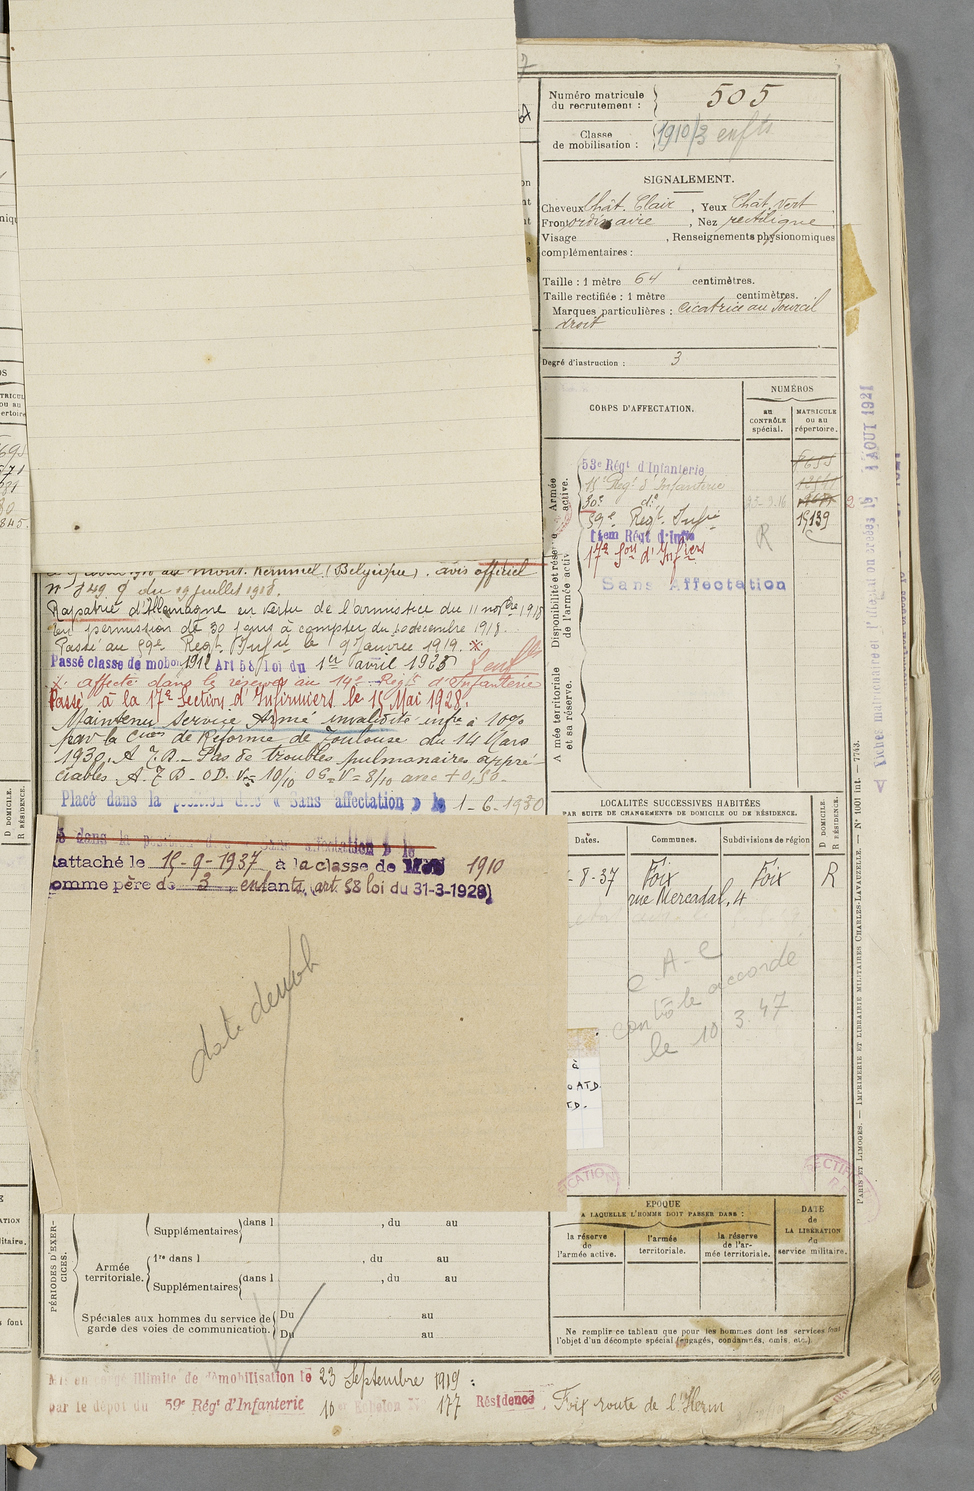 Numéro matricule du recrutement : 505
Classe de mobilisation : 1910/3 enfts
SIGNALEMENT.
Cheveux Chât. Clair, Yeux Chât. Vert,
Front ordinaire, Nez rectiligne
Visage , Renseignements physionomiques
complémentaires :
Taille : 1 mètre 64 centimètres.
Taille rectifiée : 1 mètre centimètres.
Marques particulières : cicatrice au sourcil
droit
Degré d'instruction : 3
CORPS D'AFFECTATION.
NUMÉROS
au CONTRÔLE spécial.
MATRICULE OU AU répertoire.
Armée active.
Disponibilité et réserve de l'armée active
Armée territoriale et sa réserve.
53e Régt d'Infanterie
Regt d'Infanterie
30e do
59e Regt Infie 15139
14em Régt d'Infie R
17e Son d'Infiers
Sans Affectation
au Mont Kemmel (Belgique). avis officiel
du 19 juillet 1918.
Rapatrié d'Allemagne en vertu de l'armistice du 11 novbre 1918
En permission de 30 jours à compter du décembre 1918.
Passé au 59e Regt Infie le 9 Janvier 1919. x
Passé classe de mobon 1912 Art 58/Loi du 1er avril 1923
x. affecté dans la réserve au 14e Regt d'Infanterie
Passé à la 17e Section d'Infirmiers le 15 Mai 1928.
Maintenu Service Armé invalidité infre à 10%
par la Cion de Réforme de Toulouse du 14 Mars
1930. A.T.D. - Pas de troubles pulmonaires appré-
ciables A.T.D - OD. V= 10/10 OG= V= 8/10 avec + 0,50 -
Placé dans la position dite « Sans affectation » le 1-6-1930
dans la affectation » le
Rattaché le 15-9-1937 à la classe de 1910
comme père de 3 enfants, (art. 58 loi du 31-3-1928)
date demob
LOCALITÉS SUCCESSIVES HABITÉES
PAR SUITE DE CHANGEMENTS DE DOMICILE OU DE RÉSIDENCE.
Dates. Communes. Subdivisions de région
D DOMICILE.
R RÉSIDENCE.
-8-37 Foix Foix R
rue Mercadal, 4
C.A-C
contrôle accordé
le 10 3.47
EPOQUE
A LAQUELLE L'HOMME DOIT PASSER DANS :
la réserve de l'armée active.
l'armée territoriale.
la réserve de l'armée territoriale.
DATE de LA LIBÉRATION du service militaire.
Ne remplir ce tableau que pour les hommes dont les services font
l'objet d'un décompte spécial (engagés, condamnés, omis, etc.)
PÉRIODES D'EXERCICES.
Supplémentaires dans l , du au
Armée territoriale.
1re dans l , du au
Supplémentaires dans l , du au
Spéciales aux hommes du service de garde des voies de communication.
Du au
Du au
Mis en congé illimité de démobilisation le 23 Septembre 1919 :
par le dépôt du 59e Régt d'Infanterie 10e Echelon No 177 Résidence, Foix route de l'Herm
PARIS ET LIMOGES. — IMPRIMERIE ET LIBRAIRIE MILITAIRES CHARLES-LAVAUZELLE. — No 1001 int. — 7743.
AOUT 1921